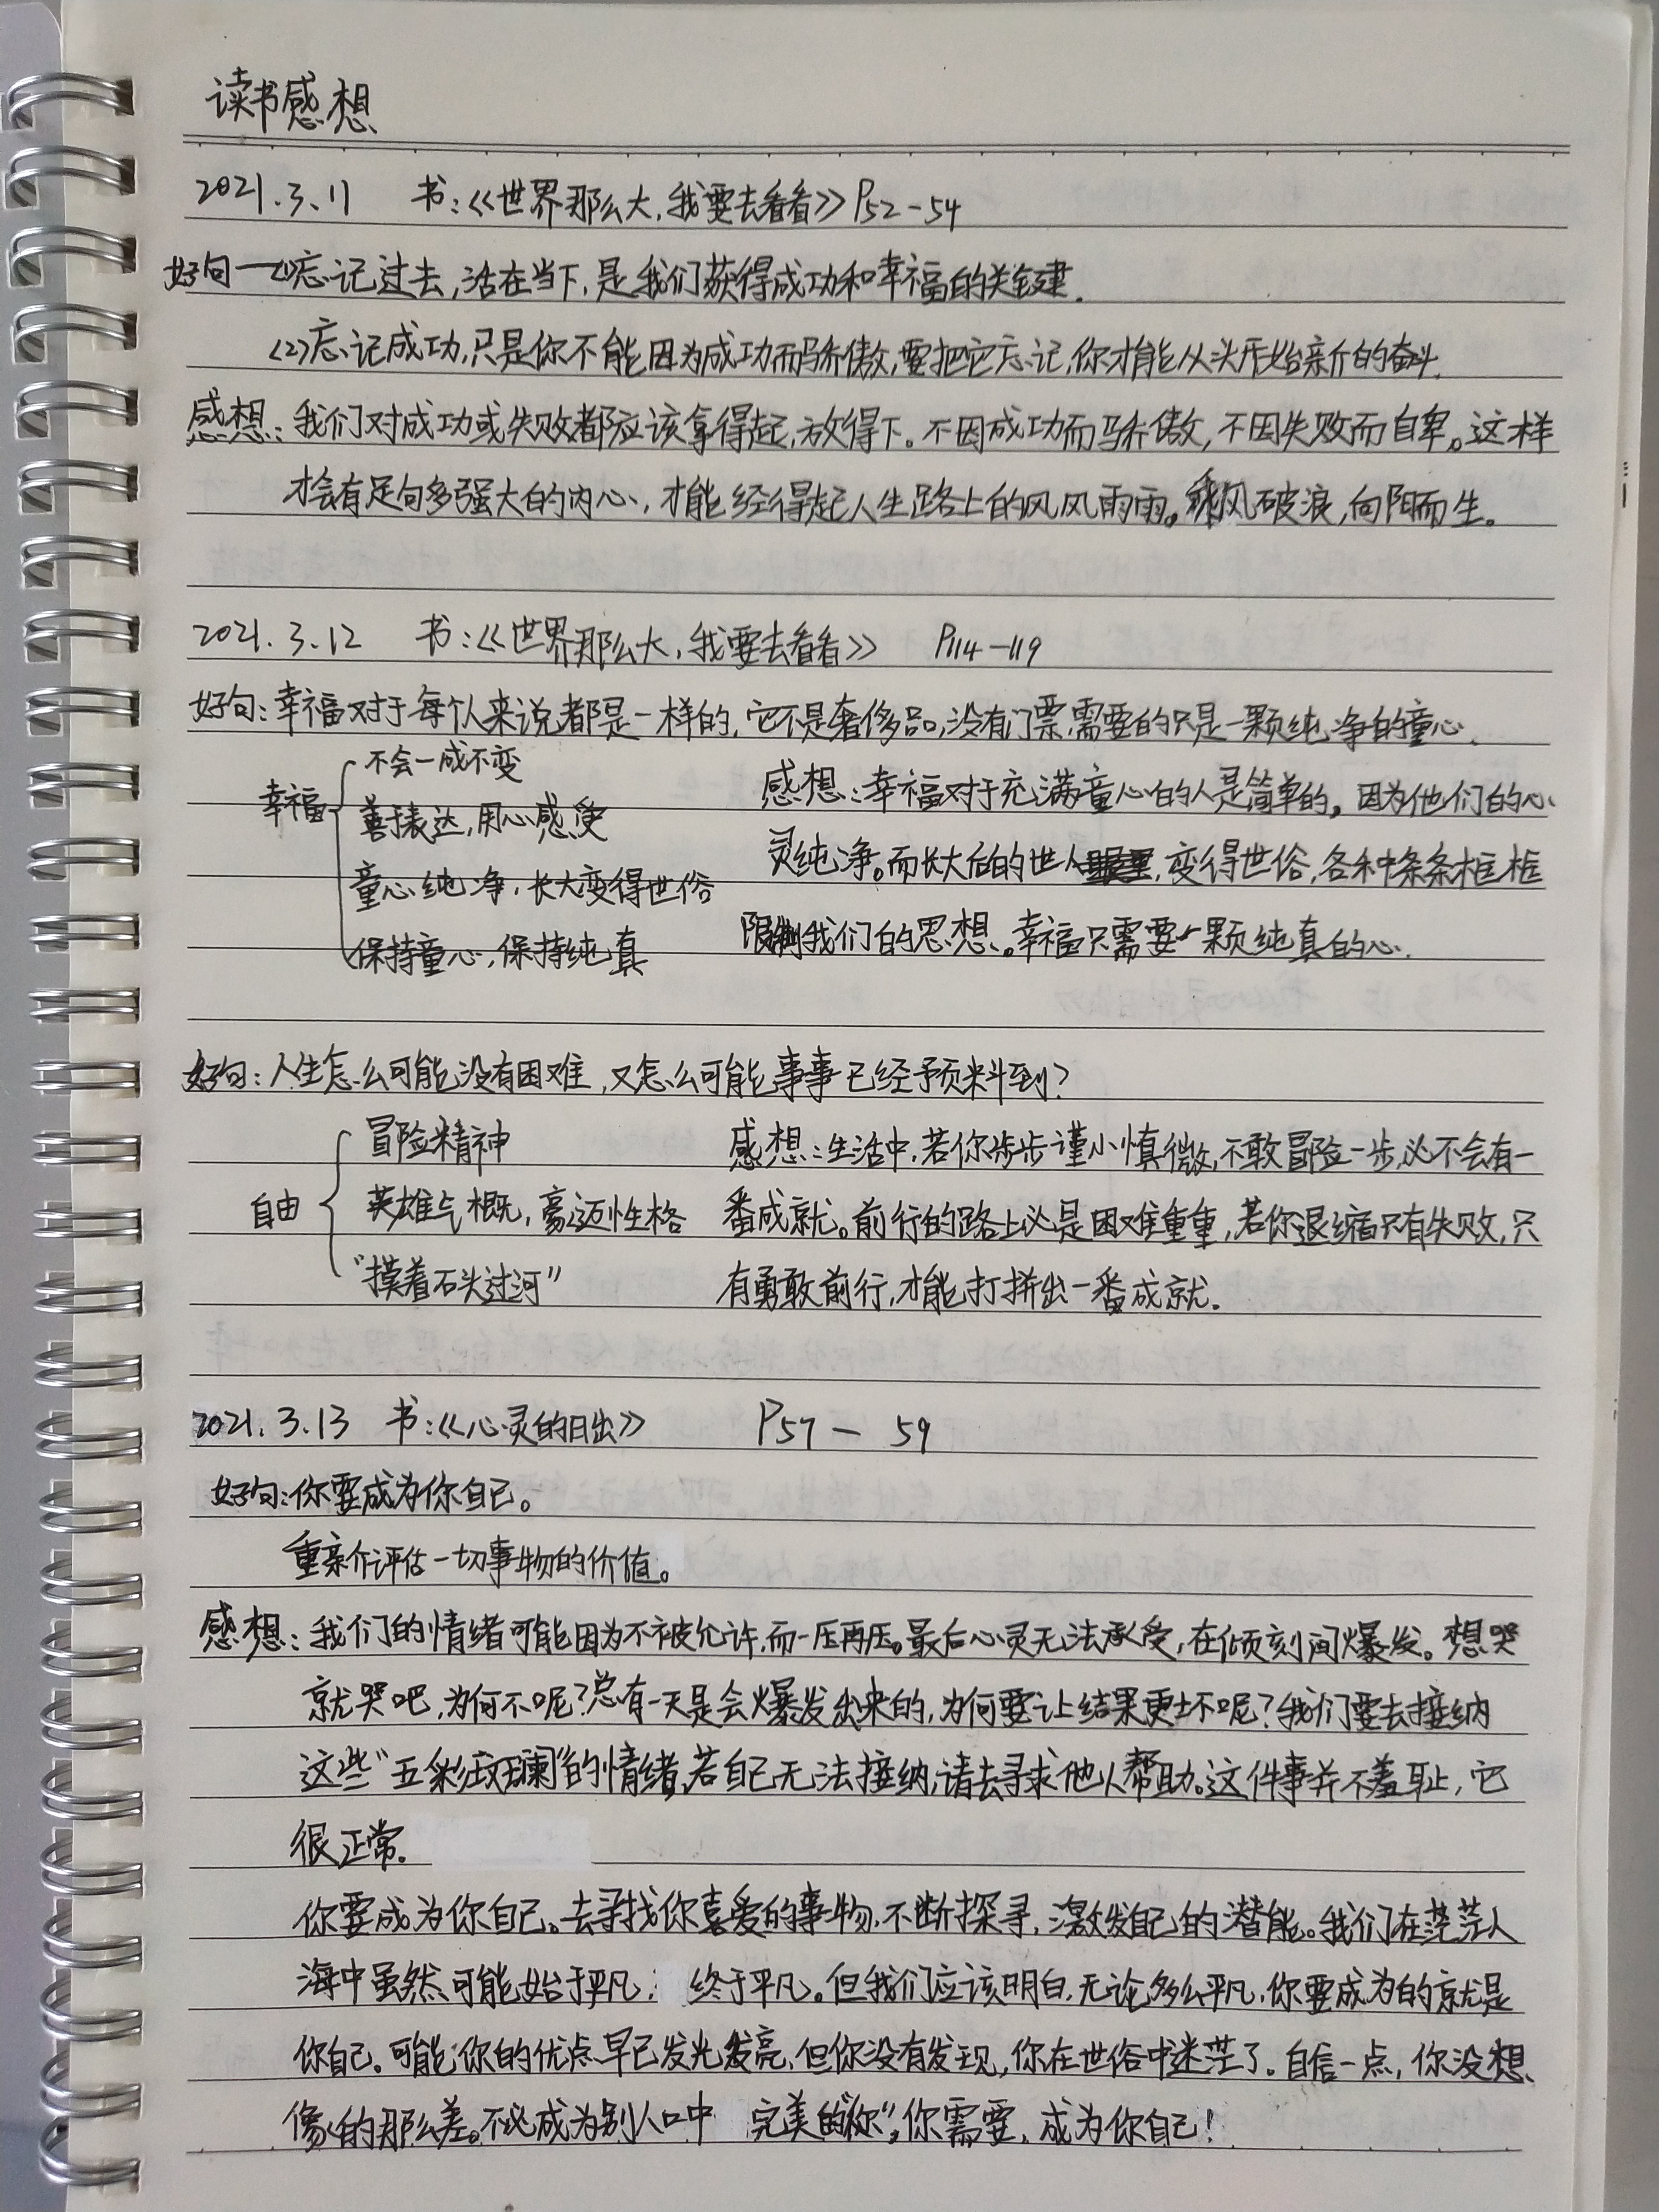 读书感想
2021.3.11 书:《世界那么大,我要去看看》P52-54
好句—(1)忘记过去,活在当下,是我们获得成功和幸福的关键.
(2)忘记成功,只是你不能因为成功而骄傲,要把它忘记,你才能从头开始新的奋斗.
感想:我们对成功或失败都应该拿得起,放得下。不因成功而骄傲,不因失败而自卑。这样
才会有足够强大的内心,才能经得起人生路上的风风雨雨。乘风破浪,向阳而生。
2021.3.12 书:《世界那么大,我要去看看》 P114-119
好句:幸福对于每个人来说都是一样的,它不是奢侈品,没有门票,需要的只是一颗纯净的童心.
幸福
不会一成不变
善于表达,用心感受
童心纯净,长大变得世俗
保持童心,保持纯真
感想:幸福对于充满童心的人是简单的,因为他们的心
灵纯净。而长大后的世人,变得世俗,各种条条框框
限制我们的思想。幸福只需要一颗纯真的心.
好句:人生怎么可能没有困难,又怎么可能事事已经预料到?
自由
冒险精神
英雄气概,豪迈性格
“摸着石头过河”
感想:生活中,若你步步谨小慎微,不敢冒险一步,必不会有一
番成就。前行的路上必是困难重重,若你退缩只有失败,只
有勇敢前行,才能打拼出一番成就.
2021.3.13 书:《心灵的日出》 P57-59
好句:你要成为你自己。
重新评估一切事物的价值。
感想:我们的情绪可能因为不被允许,而一压再压。最后心灵无法承受,在倾刻间爆发。想哭
就哭吧,为何不呢?总有一天是会爆发出来的,为何要让结果更坏呢?我们要去接纳
这些“五彩斑斓”的情绪,若自己无法接纳,请去寻求他人帮助。这件事并不羞耻,它
很正常.
你要成为你自己。去寻找你喜爱的事物,不断探寻,激发自己的潜能。我们在茫茫人
海中虽然可能始于平凡, 终于平凡。但我们应该明白,无论多么平凡,你要成为的就是
你自己。可能你的优点早已发光发亮,但你没有发现,你在世俗中迷茫了。自信一点,你没想
像的那么差。不必成为别人口中 完美的“你”,你需要,成为你自己!